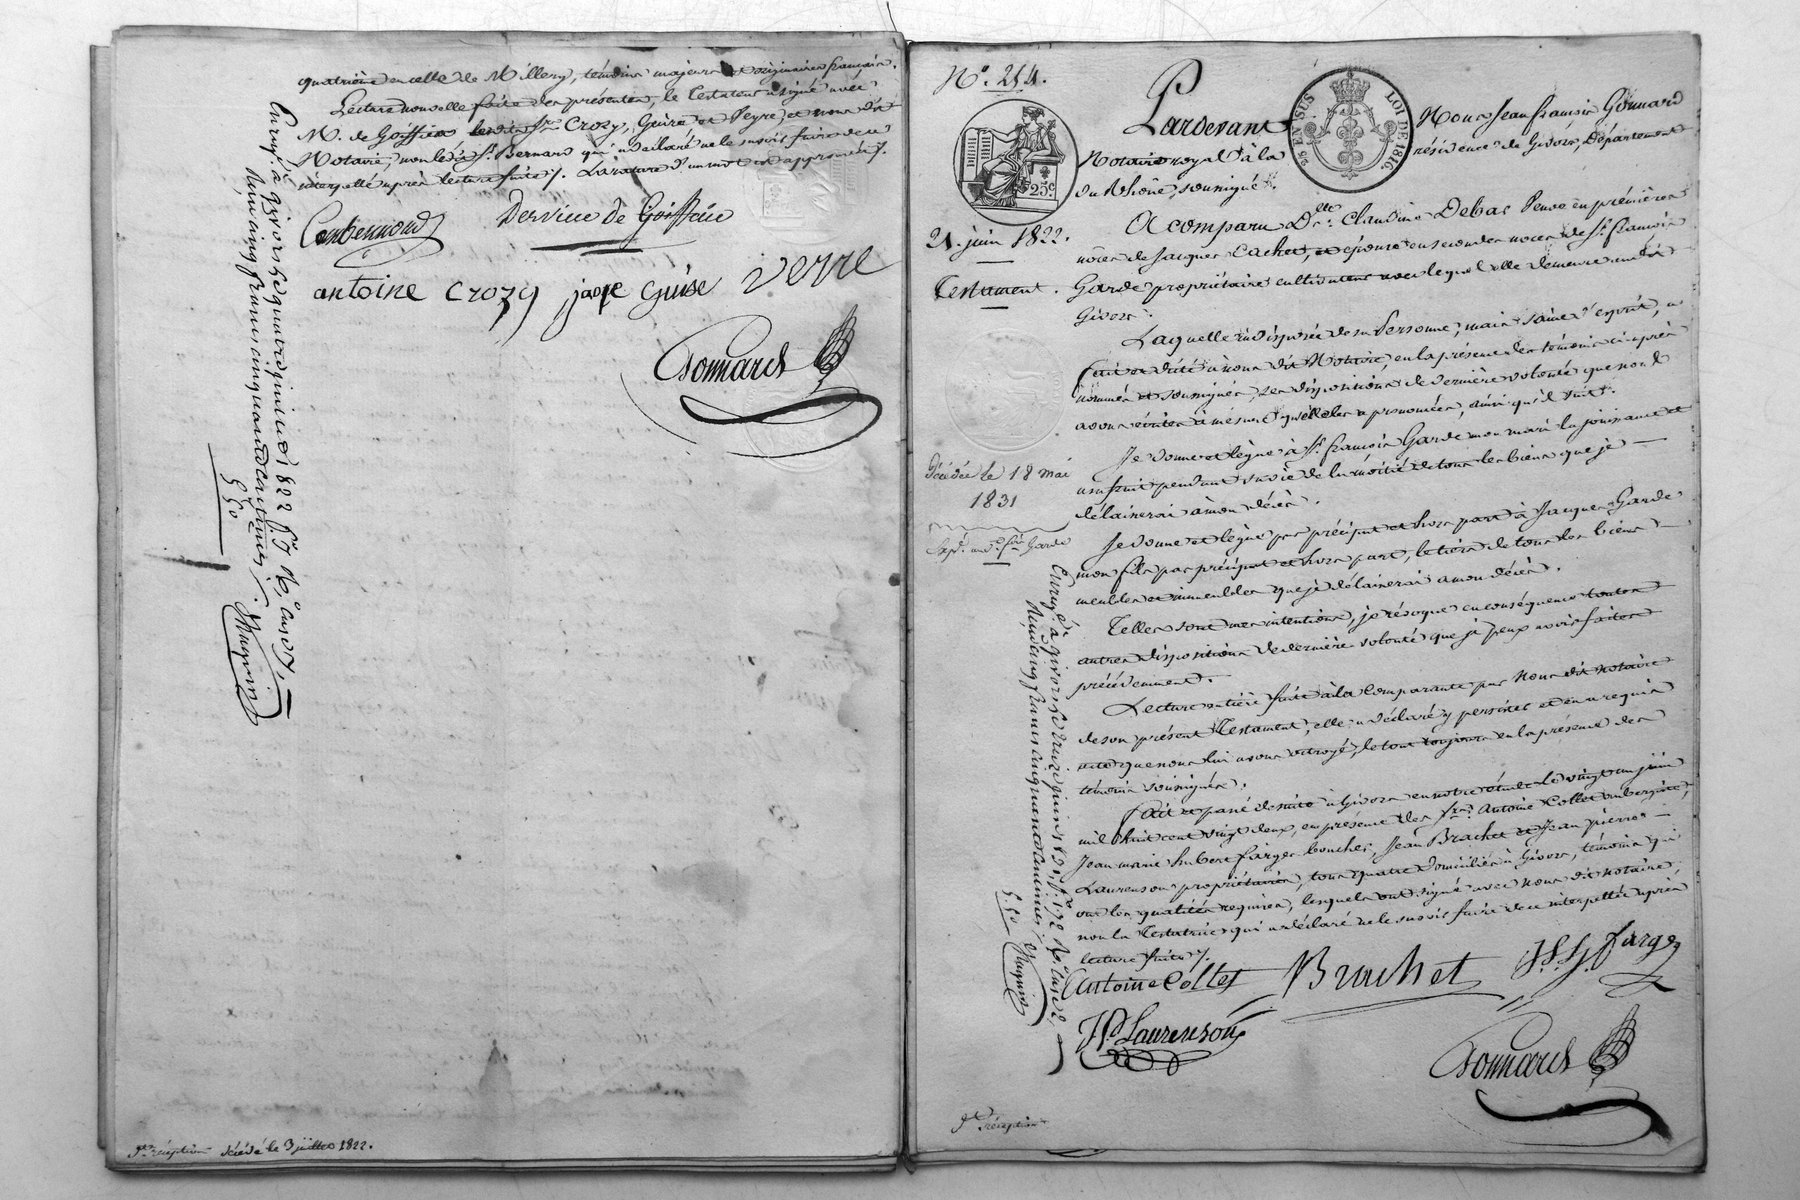 quatrième en celle de Millery, témoins majeurs et originaires français.
Lecture nouvelle faite des présentes, le Testateur a signé avec
M. de Goiffieu Srs Crozy, Guise et Peyre, et nous dit
Notaire, non ledit Sr. Bernard qui a déclaré ne le savoir faire de ce
interpellé après lecture faite /. La rature d'un mot est approuvée /.
Derview de Goiffieu
antoine Crozy jaqe Guise
Gonnard
Enregé. à Givors le quatre juin 1822 fo.
Reçu cinq francs cinquante centimes /.
5
50
5. 50
pr. réception décédé le 3 juillet 1822.
No. 254.
25c
21. juin 1822.
Testament.
Décédée le 18 mai
1831
Exp. Garde
Enregé. à Givors le juin 1831, fo. 172
Reçu cinq francs cinquante centimes
5. 50
EN SUS LOI DE 1816
Pardevant Nous Jean françois Gonnard
Notaire royal à la résidence de Givors, Département
du Rhône, soussigné.
A comparu Dlle. Claudine Debas Veuve en premières
nôces de Jacques Cachet, et épouse en secondes noces de Sr. françois
Garde propriétaire cultivateur avec lequel elle demeure audit
Givors.
Laquelle indisposée de sa Personne, mais saine d'esprit, a
fait et dicté à nous dit Notaire, en la présence des témoins ci-après
nommés et soussignés, ses dispositions de dernière volonté que nous
avons écrites à mesure qu'elle les a prononcées, ainsi qu'il suit.
Je donne et lègue à Sr. françois Garde mon mari la jouissance et
usufruit pendant sa vie de la moitié de tous les biens que je
délaisserai à mon décès.
Je donne et lègue par préciput et hors part à Jacques Garde
mon fils par préciput et hors part, le tiers de tous les biens
meubles et immeubles que je délaisserai à mon décès.
Telles sont mes intentions, je révoque en conséquence toutes
autres dispositions de dernière volonté que je peux avoir faites
précédemment.
Lecture entière faite à la comparante par Nous dit notaire
de son présent Testament, elle a déclaré y persister et en a requis
acte que nous lui avons octroyé, le tout toujours en la présence des
témoins soussignés.
Fait et passé de suite à Givors en notre étude le vingt un juin
mil huit cent vingt deux, en présence des Srs. Antoine Collet aubergiste,
Jean marie hubert farges boucher, Jean Brachet et Jean pierre
Laurenson propriétaires, tous quatre domiciliés à Givors, témoins qui
ont les qualités requises, lesquels ont signé avec nous dit notaire
non la Testatrice qui a déclaré ne le savoir faire de ce interpellée après
lecture faite /.
Antoine Collet Brachet farges
Laurenson
Gonnard
pr. réception